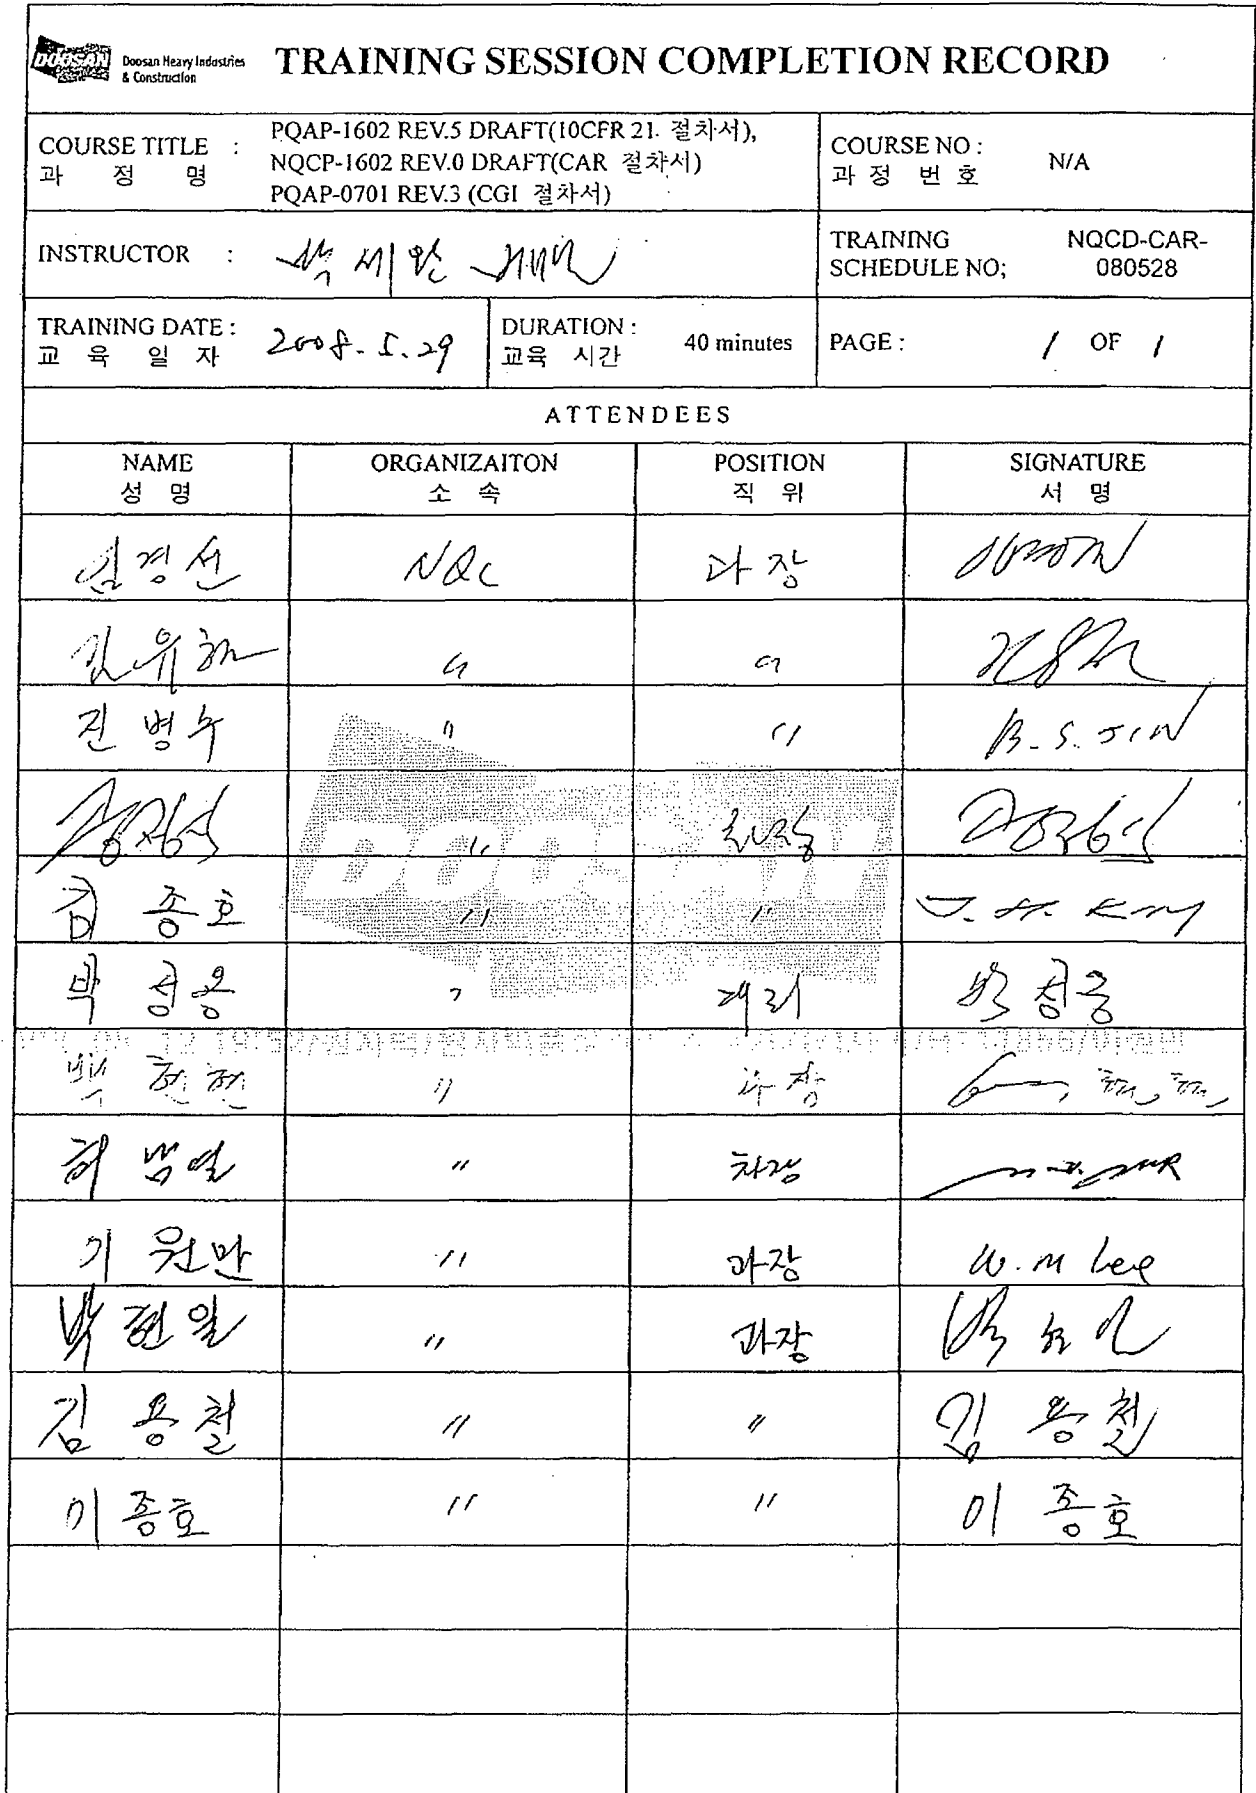 DOOSAN Doosan Heavy Industries
& Construction
TRAINING SESSION COMPLETION RECORD
COURSE TITLE :
과 정 명
PQAP-1602 REV.5 DRAFT(10CFR 21. 절차서),
NQCP-1602 REV.0 DRAFT(CAR 절차서)
PQAP-0701 REV.3 (CGI 절차서)
COURSE NO :
과 정 번 호
N/A
INSTRUCTOR :
박세완
TRAINING
SCHEDULE NO;
NQCD-CAR-
080528
TRAINING DATE :
교 육 일 자
2008. 5. 29
DURATION :
교육 시간
40 minutes
PAGE : 1 OF 1
ATTENDEES
NAME
성 명
ORGANIZAITON
소 속
POSITION
직 위
SIGNATURE
서 명
김경선 NQC 과장
김유하 " "
진병수 " " B.S. JIN
"
김 종호 " " J. H. Kim
박 성용 " 대리 박 성용
백 헌헌 " 과장
허 범열 " 차장
이 원만 " 과장 W. M Lee
박현일 " 과장
김 용철 " " 김 용철
이 종호 " " 이 종호